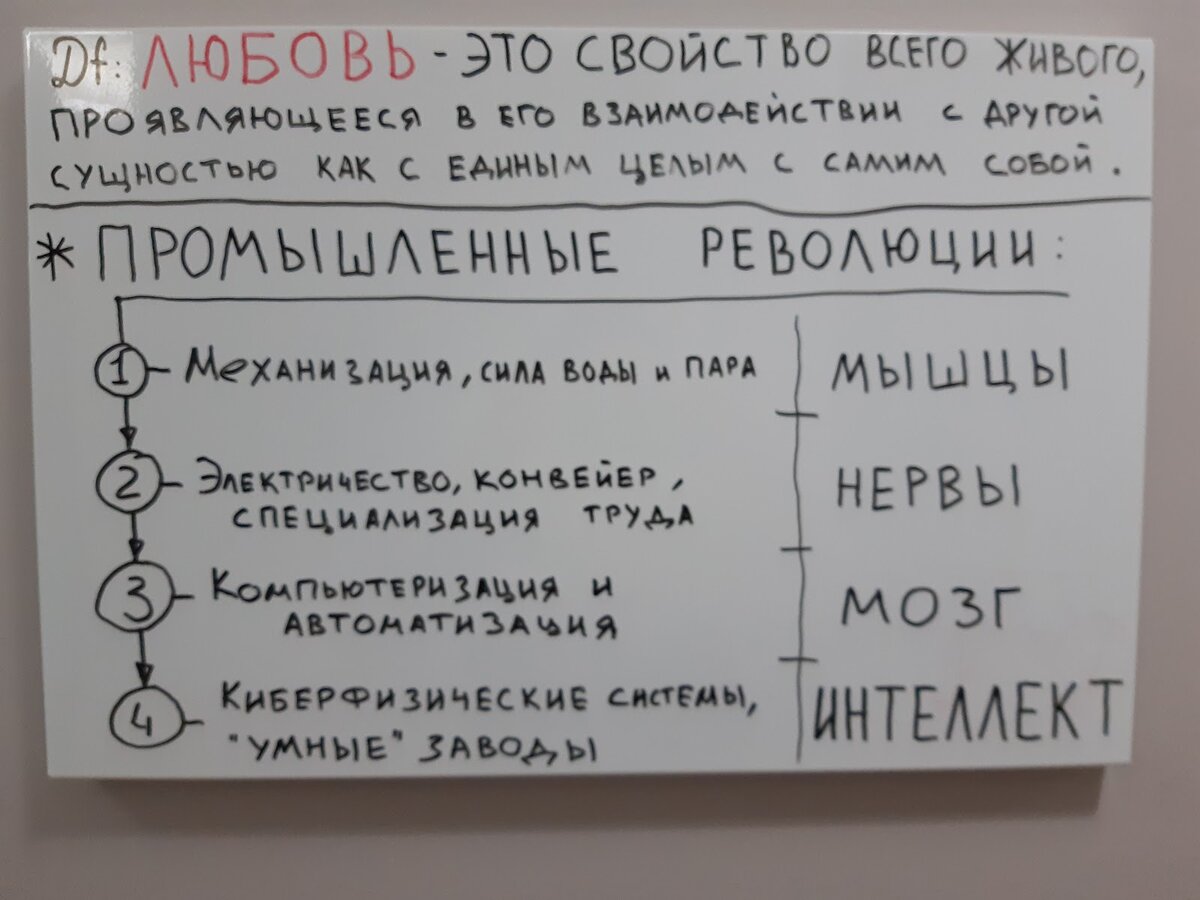 Df: ЛЮБОВЬ - ЭТО СВОЙСТВО ВСЕГО ЖИВОГО,
ПРОЯВЛЯЮЩЕЕСЯ В ЕГО ВЗАИМОДЕЙСТВИИ С ДРУГОЙ
СУЩНОСТЬЮ КАК С ЕДИНЫМ ЦЕЛЫМ С САМИМ СОБОЙ.
* ПРОМЫШЛЕННЫЕ РЕВОЛЮЦИИ:
1 - МЕХАНИЗАЦИЯ, СИЛА ВОДЫ И ПАРА МЫШЦЫ
2 - ЭЛЕКТРИЧЕСТВО, КОНВЕЙЕР, НЕРВЫ
СПЕЦИАЛИЗАЦИЯ ТРУДА
3 - КОМПЬЮТЕРИЗАЦИЯ И МОЗГ
АВТОМАТИЗАЦИЯ
4 - КИБЕРФИЗИЧЕСКИЕ СИСТЕМЫ, ИНТЕЛЛЕКТ
"УМНЫЕ" ЗАВОДЫ